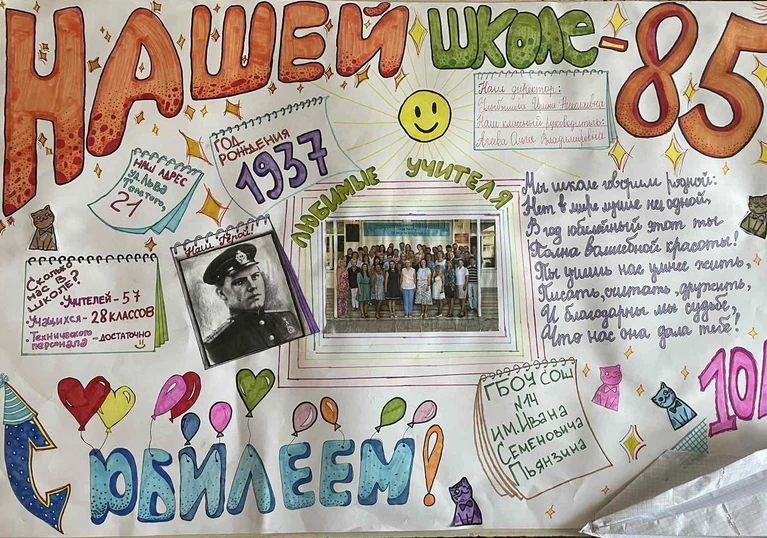 НАШЕЙ ШКОЛЕ-85
Наш директор:
Ирина Николаевна
Наш классный руководитель:
Агеева Ольга Владимировна
ГОД
РОЖДЕНИЯ
1937
НАШ АДРЕС
ул. Льва
Толстого,
21
ЛЮБИМЫЕ УЧИТЕЛЯ
Наш Герой!
Сколько
нас в
школе?
•Учителей-57
•Учащихся-28 классов
•Технического
персонала-достаточно
Мы школе говорим родной:
Нет в мире лучше ни одной,
В год юбилейный этот ты
Полна волшебной красоты!
Ты учишь нас умнее жить,
Писать, считать, дружить,
И благодарны мы судьбе,
Что нас она дала тебе!
ГБОУ СОШ
№14
им.Ивана
Семеновича
Пьянзина
10
С ЮБИЛЕЕМ!